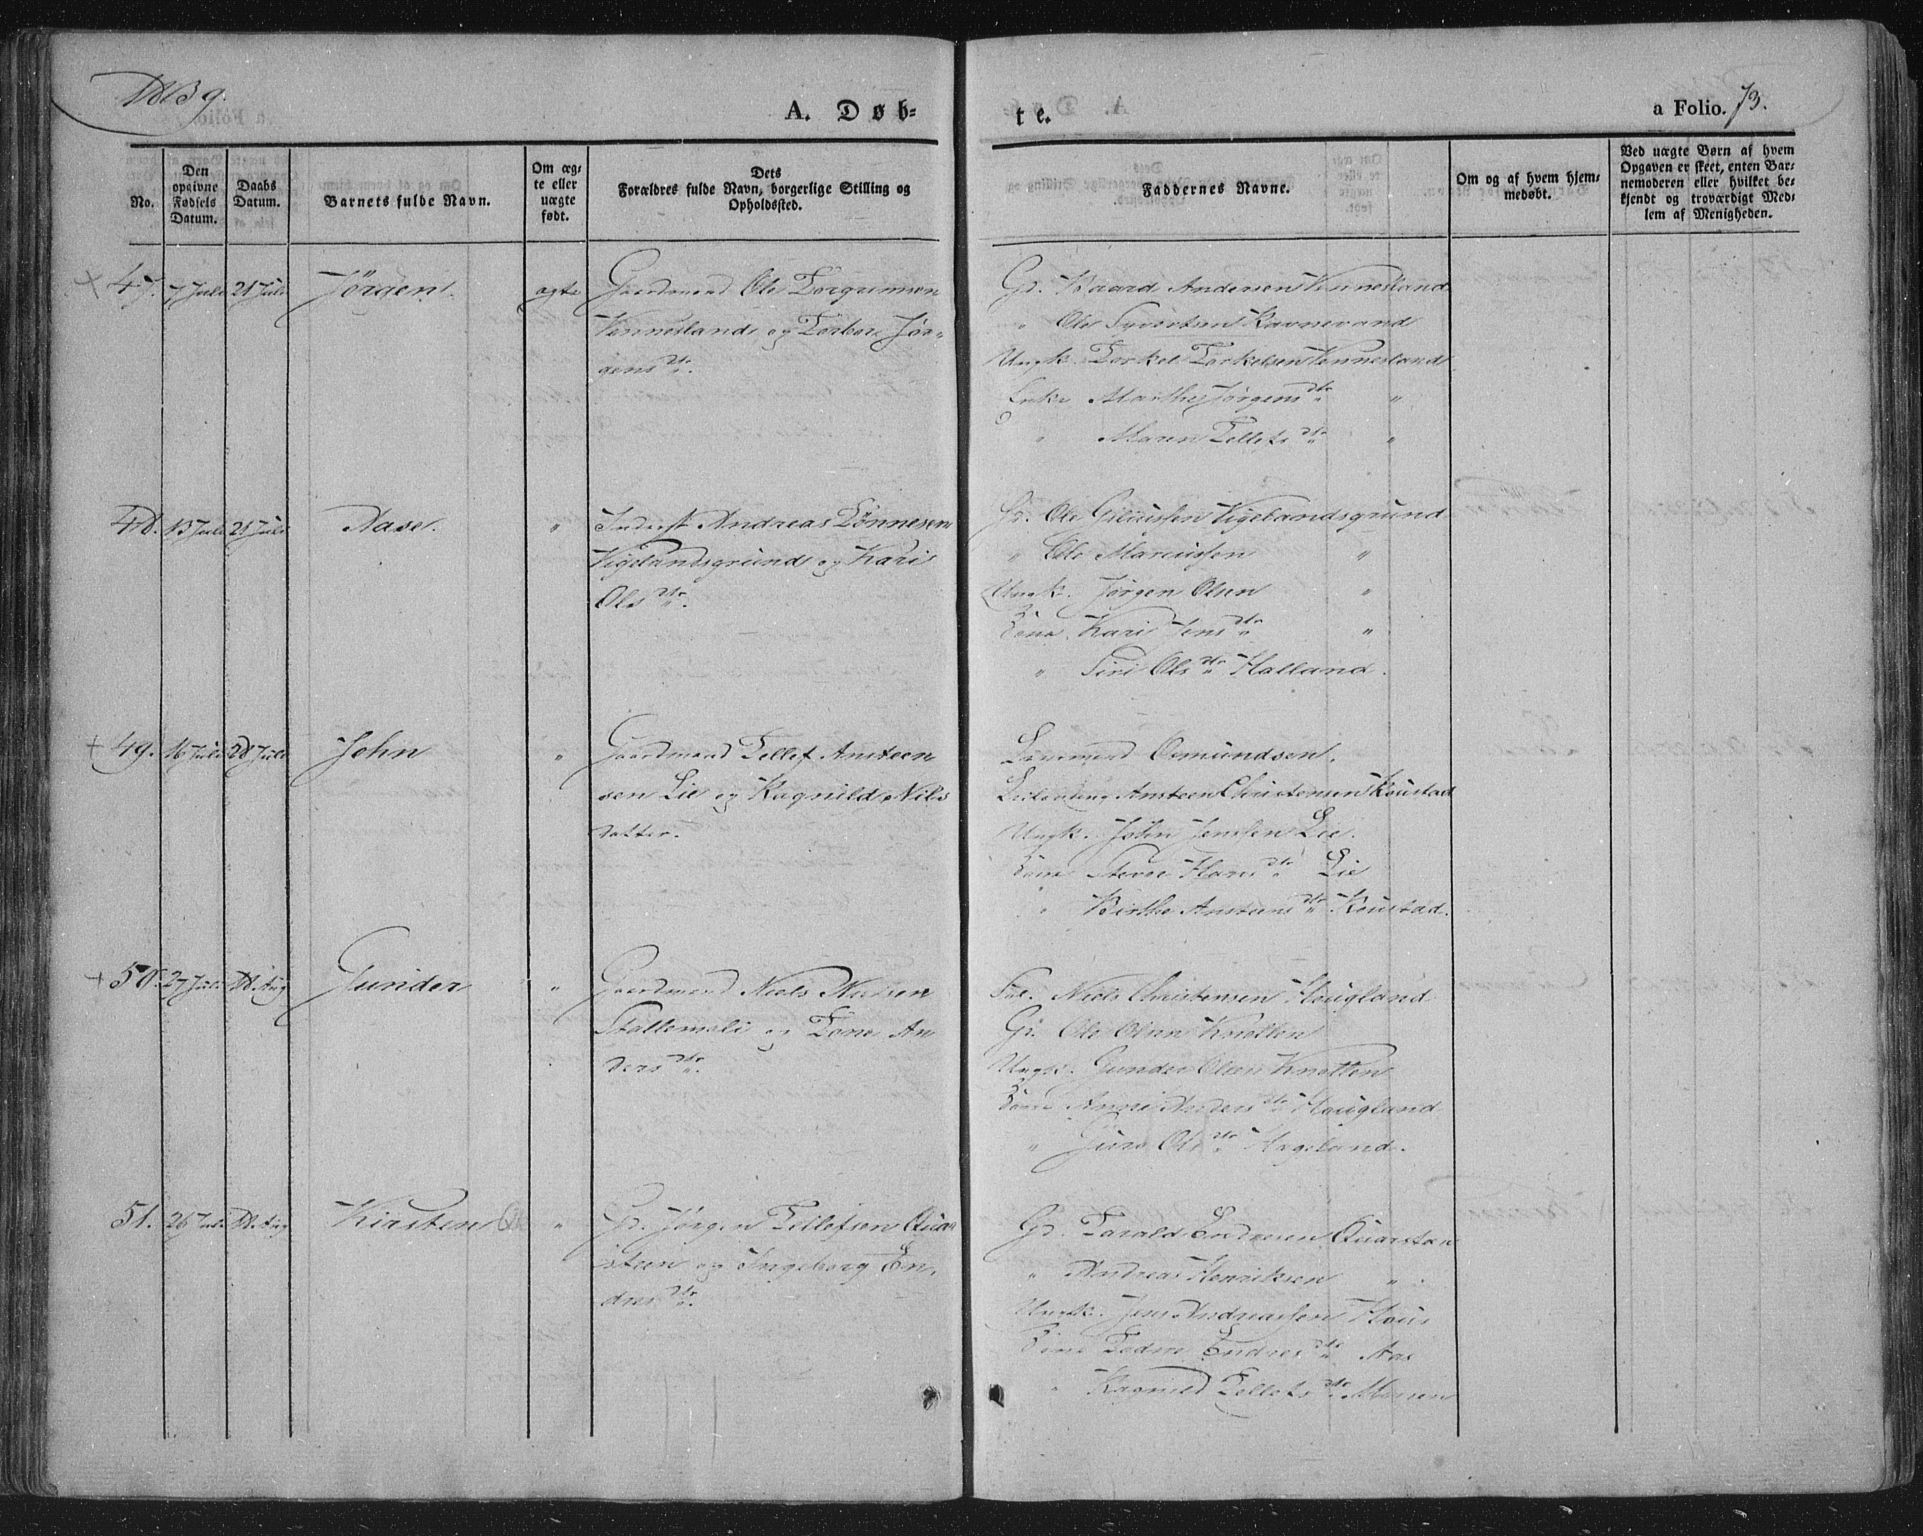 1839.
A. Døb-
te.
a Folio. 73.
No.
Den opgivne Fødsels Datum.
Daabs Datum.
Barnets fulde Navn.
Om æg-
te eller
uægte
født.
Dets
Forældres fulde Navn, borgerlige Stilling og
Opholdssted.
Faddernes Navne.
Om og af hvem hjem-
medøbt.
Ved uægte Børn af hvem
Opgaven er skeet, enten Bar-
nemoderen eller hvilket be-
kjendt og troværdigt Med-
lem af Menigheden.
+ 47. 7 Juli 21 Juli Jörgen. ægte Gaardmand Ole Torgrimsen
Vennesland og Torbor Jör-
gensdtr.
Gr. Baard Andersen Vennesland
" Ole Syvertsen Ravnevand
Ungk. Torkel Torkelsen Vennesland
Enke Marthe Jörgensdtr "
" Maren Tellefsdtr "
48. 13 Juli 21 Juli Aase. " Inderst Andreas Tönnesen
Vigelandsgrund og Kari
Olsdtr.
Gr. Ole Vigelandsgrund
" Ole Marcussen "
Ungk. Jörgen Olsen "
Kone Kari Jensdtr "
" Siri Olsdtr Halland.
+ 49. 16 Juli 28 Juli John " Gaardmand Tellef Ansteen
sen Lie og Ragnild Nils
datter.
Osmundsen.
Ansteen Christensen Roustad
Ungk. John Jenssen Lie.
Kone Hansdtr Lie
" Birthe Ansteensdtr Roustad.
+ 50. 27 Juli 18 Aug Gunder " Gaardmand Niels Nielsen
Stallemoli og Tone An
dersdtr.
Niels Christensen Hougland
Gr. Ole Olsen Knotten
Ungk. Gunder Olsen Knotten
Kone Anne Andersdtr Hougland
" Juro Olsdtr Hageland.
51. 26 Juli 18 Aug Kirsten " Gr. Jörgen Tellefsen Quar
steen og Ingeborg En.
dresdtr.
Gr. Tarald Endresen Quarsteen
" Andreas Henriksen "
Ungk. Jens Andreassen Hous
Endresdtr Aas
" Ragnild Tellefsdtr Moseen